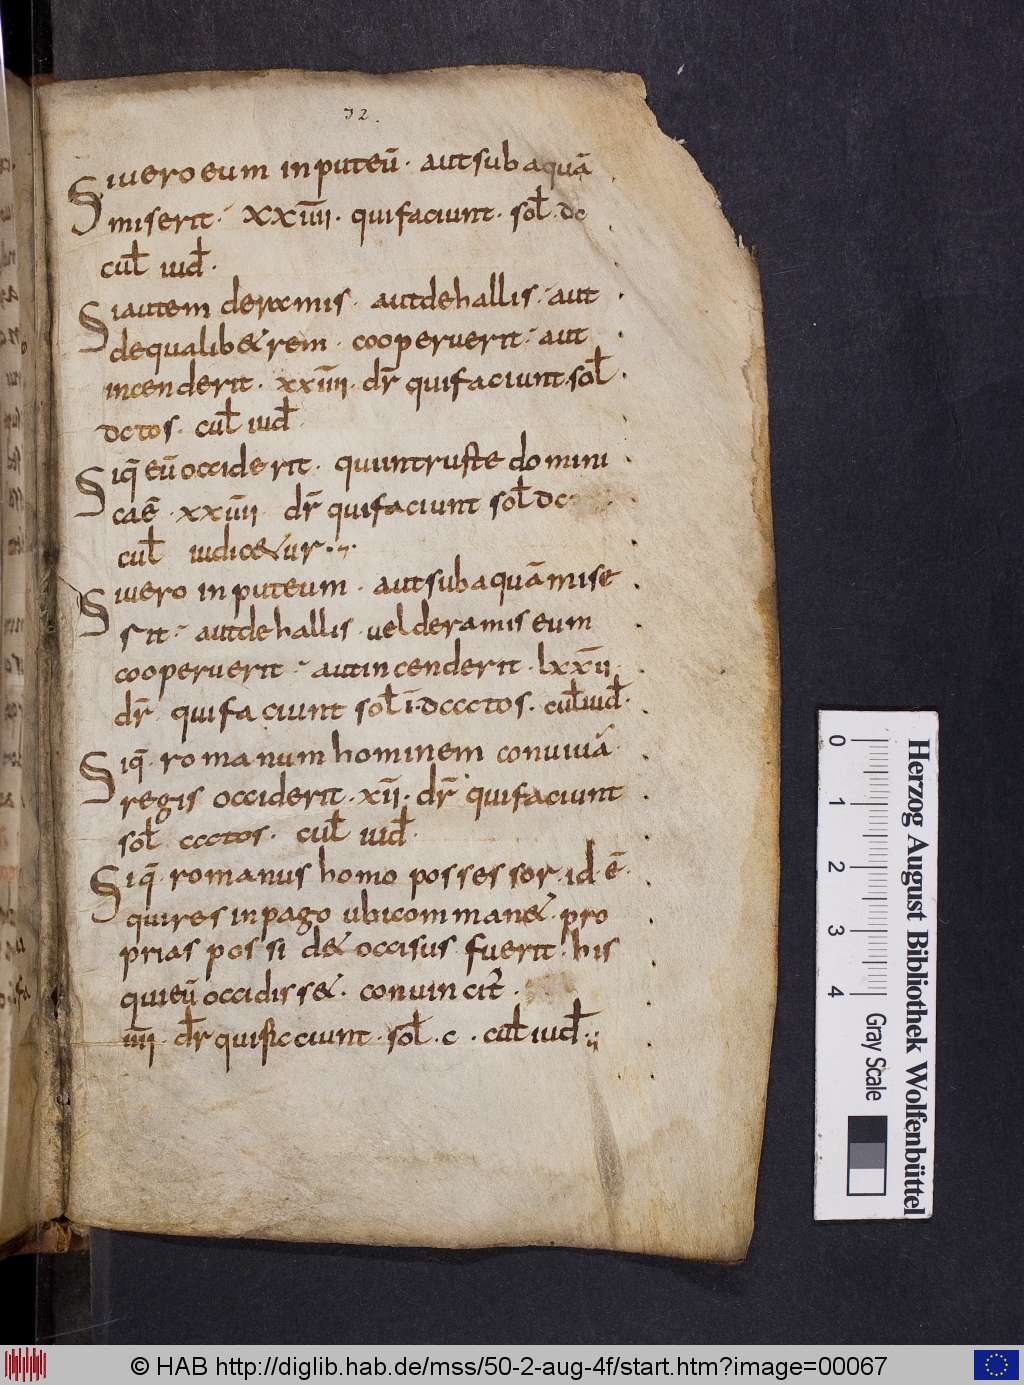 32.
Siuero eum inputeū· autsubaquā
miserit· XXIIII· quifaciunt· sol· dc
cul iud·
Siautem deramis· autdehallis· aut
dequalib&rem· cooperuerit· aut
incenderit· xxiiii· dr quifaciunt·sol·
dctos· cul iud·
Siq̄ eū occiderit· quiintruste domini
caē· xxiiii dr quifaciunt sol dc·
cul iudic&ur·
Siuero inputeum· autsubaquā mise
rit· autdehallis· uelderamis eum
cooperuerit· autincenderit· lxxii·
dr· quifaciunt sol ī·dccctos· culiud·
Siq̄· romanum hominem conuiuā·
regis occiderit· xii· dr quifaciunt
sol ccctos· cul iud·
Siq̄· romanus homo possessor· id ē·
quires inpago ubicomman&· pro
prias possid& occisus fuerit· his
quieū occidiss&· conuincit·
iiii· dr quificciunt· sol· c· cul iud·
0 1 2 3 4
Gray Scale
Herzog August Bibliothek Wolfenbüttel
© HAB http://diglib.hab.de/mss/50-2-aug-4f/start.htm?image=00067